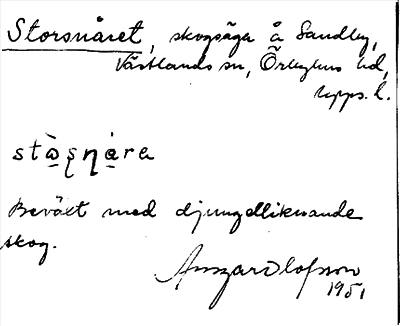 Storsnåret, skogsäga å Sandby,
Västlands sn, Örbyhus hd,
Upps. l.
stò̱ʂɳà̱rɐ
Beväxt med djungelliknande
skog.
Ansgar Olofsson
1951